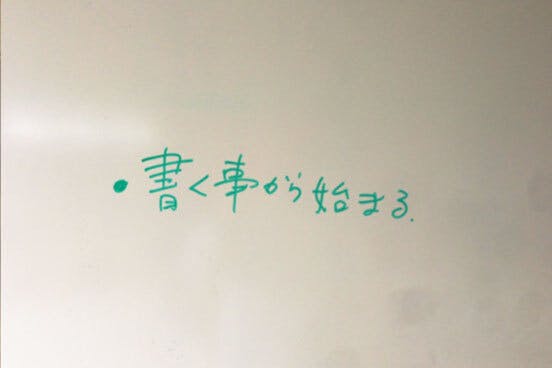 ・書く事から始まる.